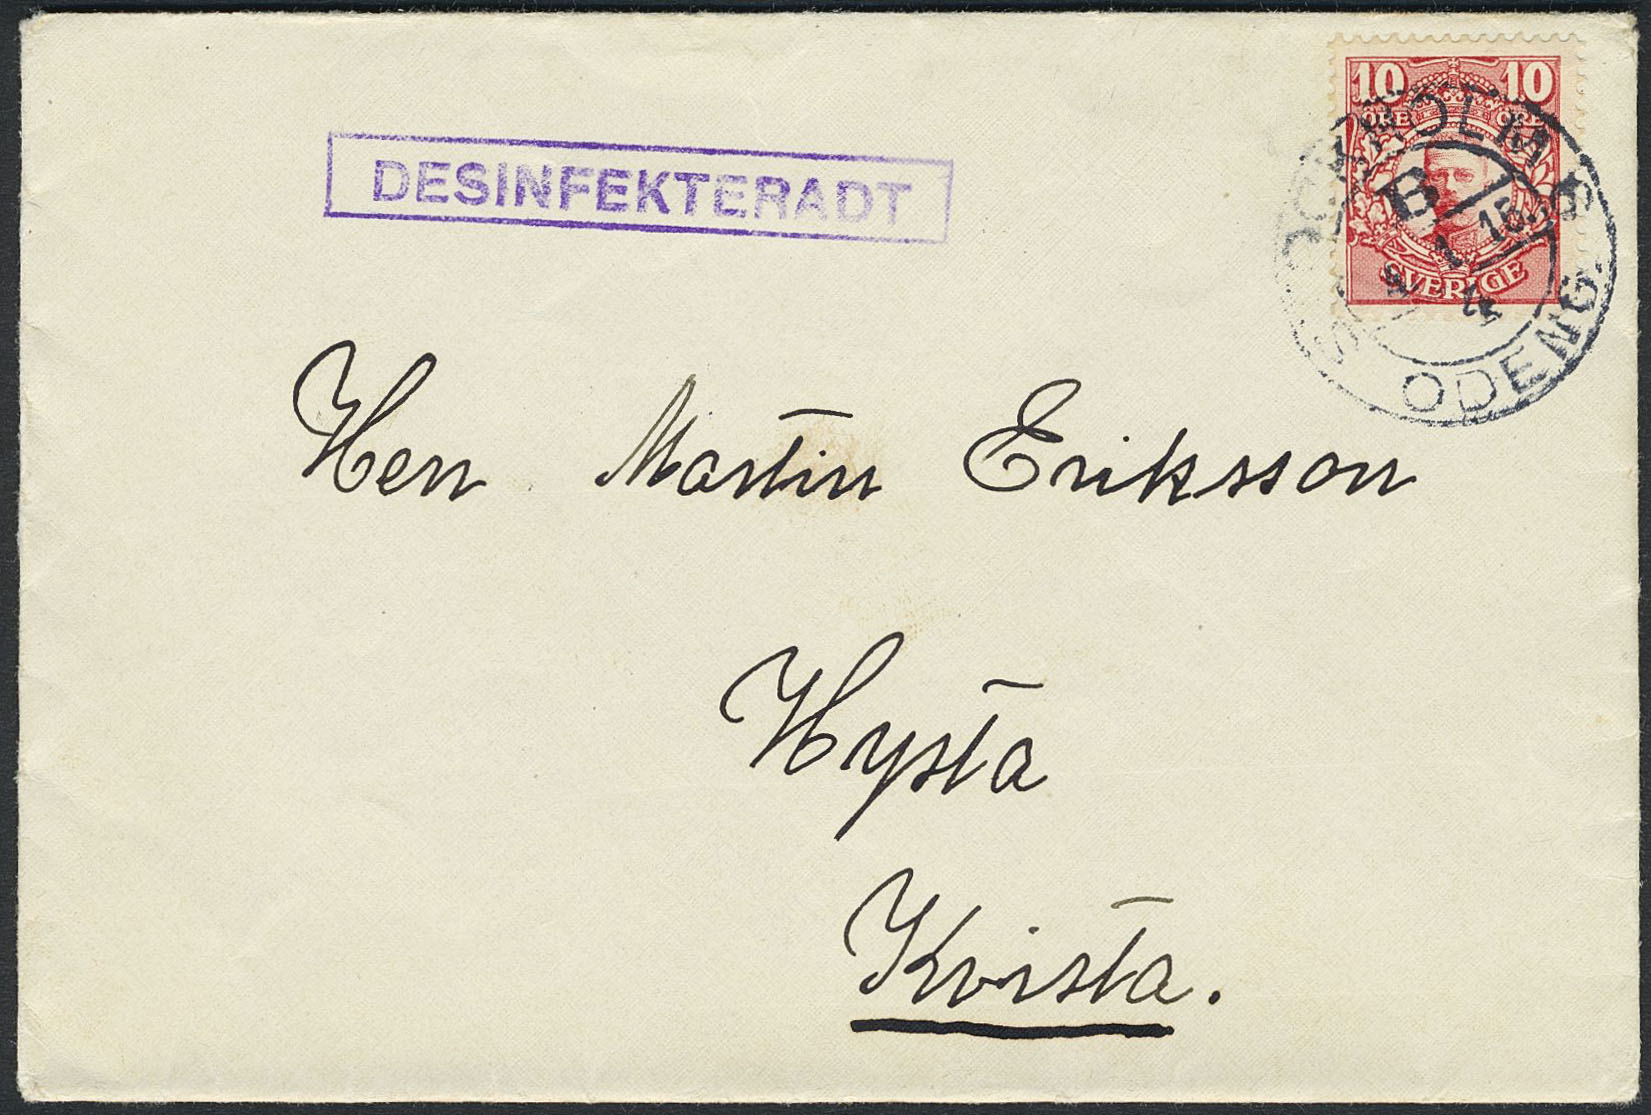 DESINFEKTERADT
10 10
ÖRE ÖRE
SVERIGE
STOCKHOLM 6
B
1 15
4
ODENG.
Herr Martin Eriksson
Hysta
Kvista.